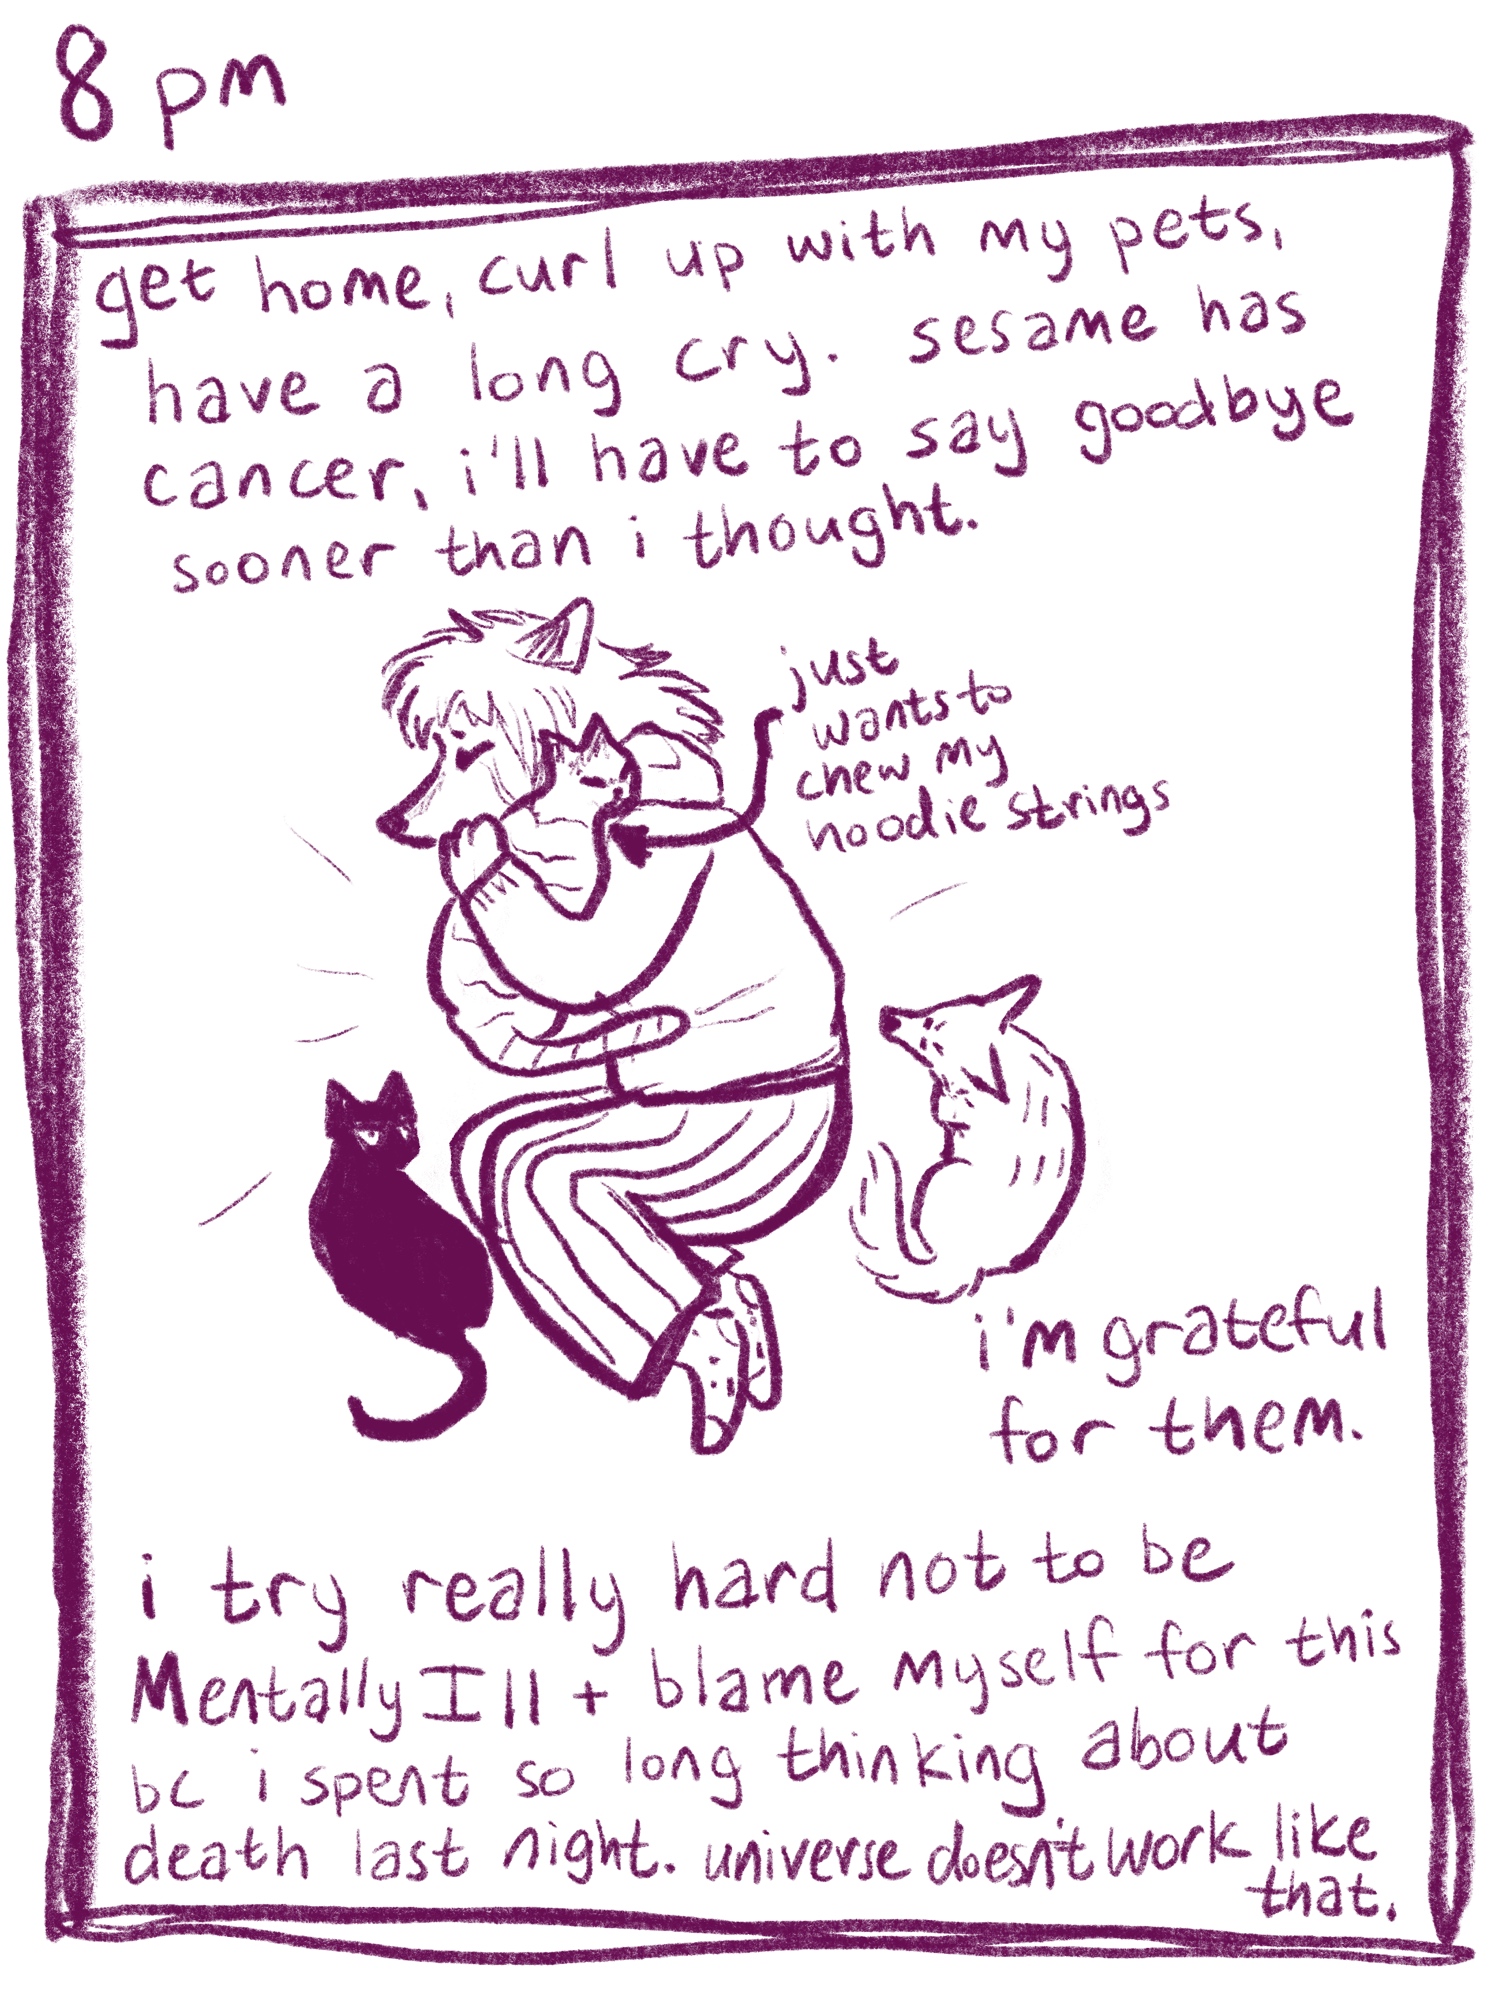 8 pm
get home, curl up with my pets,
have a long cry. sesame has
cancer, i'll have to say goodbye
sooner than i thought.
just
wants to
chew my
hoodie strings
i'm grateful
for them.
i try really hard not to be
Mentally Ill + blame myself for this
bc i spent so long thinking about
death last night. universe doesn't work like
that.